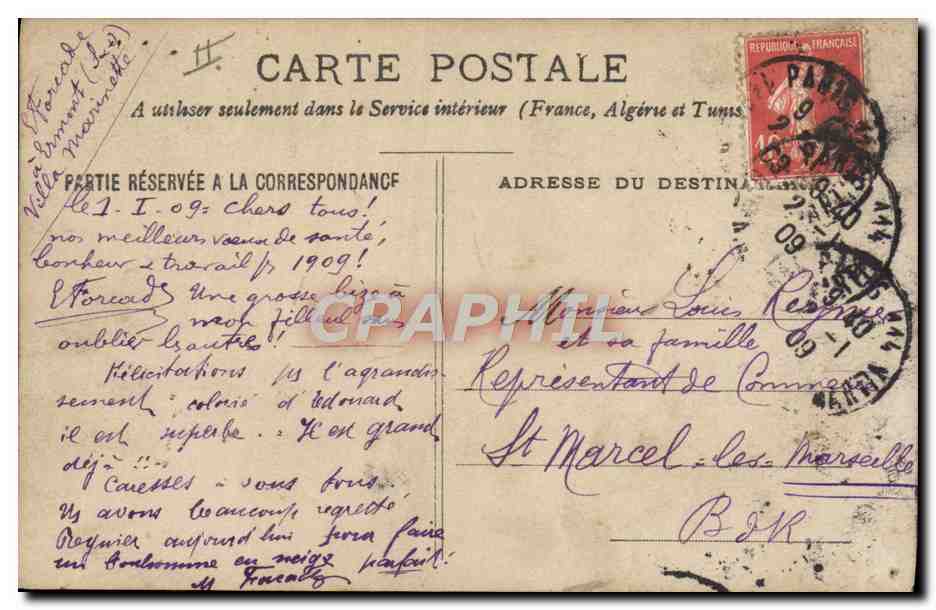 E Forcade
à Ermont (S-&-O)
Villa Marinette
CARTE POSTALE
A utiliser seulement dans le Service intérieur (France, Algérie et Tunis
PARTIE RÉSERVÉE A LA CORRESPONDANCE
le 1-I-09= chers tous!
nos meilleurs vœux de santé,
bonheur & travail pr 1909!
E Forcade Une grosse bize à
mon filleul sans
oublier les autres!
Félicitations pr l'agrandis
sement colorié d'Edouard
il est superbe. = Il est grand
déjà !!!
Caresses à vous tous.
Ns avons beaucoup regretté
Reynier aujourd'hui pour faire
un bonhomme en neige parfait!
REPUBLIQUE FRANÇAISE
10
PARIS
ADRESSE DU DESTINA
Monsieur Louis Reynier
et sa famille
Représentant de Commerce
St Marcel=les=Marseille
BdR
CPRAPHIL